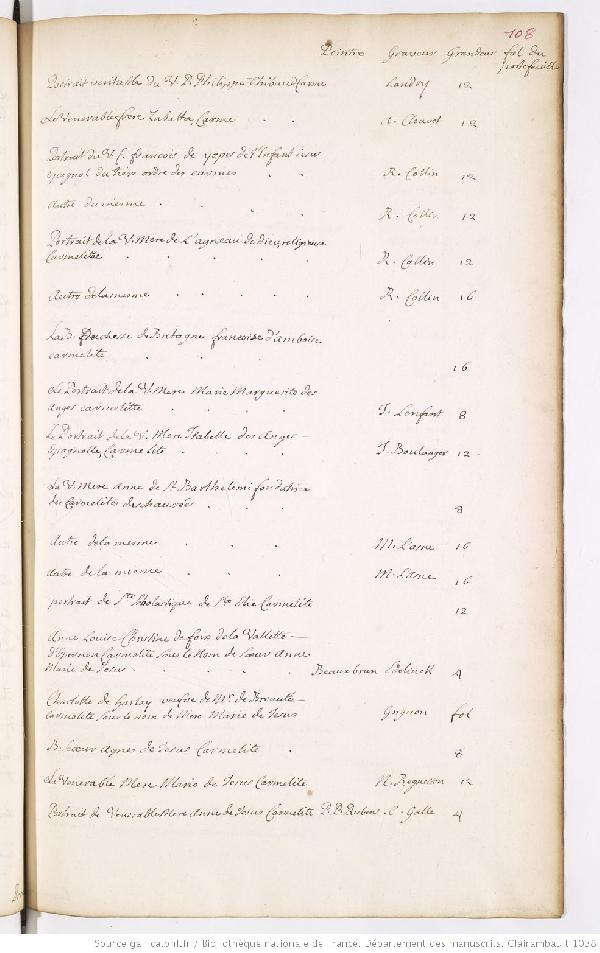 108
Peintre Graveur Grandeur fol. du
portefeuille
Portrait veritable du V. P. Philippe Thibaud Carme Landry 12
Le Venerable frere Carme . . Clouvet 12
Portrait du V. f. francois de yepes de l'Enfant iesus
Espagnol du tiers ordre des carmes . . R. Collin 12
Autre du mesme . . . . R. Collin 12
Portrait de la V. Mere de L'agneau de Dieu religieuse
Carmelitte . . . . R. Collin 12
Autre de la mesme . . . . R. Collin 16
La B. Duchesse de Bretagne francoise d'amboise
carmelite . . . 16
Le Portrait de la V. Mere Marie Marguerite des
Anges carmelitte . . . J. Lenfant 8
Le Portrait de la V. Mere Isabelle des Anges —
Espagnolle, Carmelite . . . J. Boulanger 12
La V. Mere Anne de St Barthelemi fondatrice
des Carmelites deschaussées . . . 8
Autre de la mesme . . . M. Lasne 16
Autre de la mesme . . . M. Lasne 16
portrait de Ste Scolastique de St Elie Carmelite 12
Anne Louise Christine de foix de la Vallette —
d'Epernon Carmelite sous le Nom de Sœur Anne
Marie de Jesus . . . Beaux brun Edelinck 4
Charlotte de veufve de Mr. de
Carmelite sous le nom de Mere Marie de Jesus fol
B. sœur Agnes de Jesus Carmelite . 8
La Venerable Mere Marie de Jesus Carmelite N. Regnesson 12
Portrait de Venerable Mere Anne de Jesus Carmelite P. P. Rubens C. Galle 4
Source gallica.bnf.fr / Bibliothèque nationale de France. Département des manuscrits. Clairambault 1038